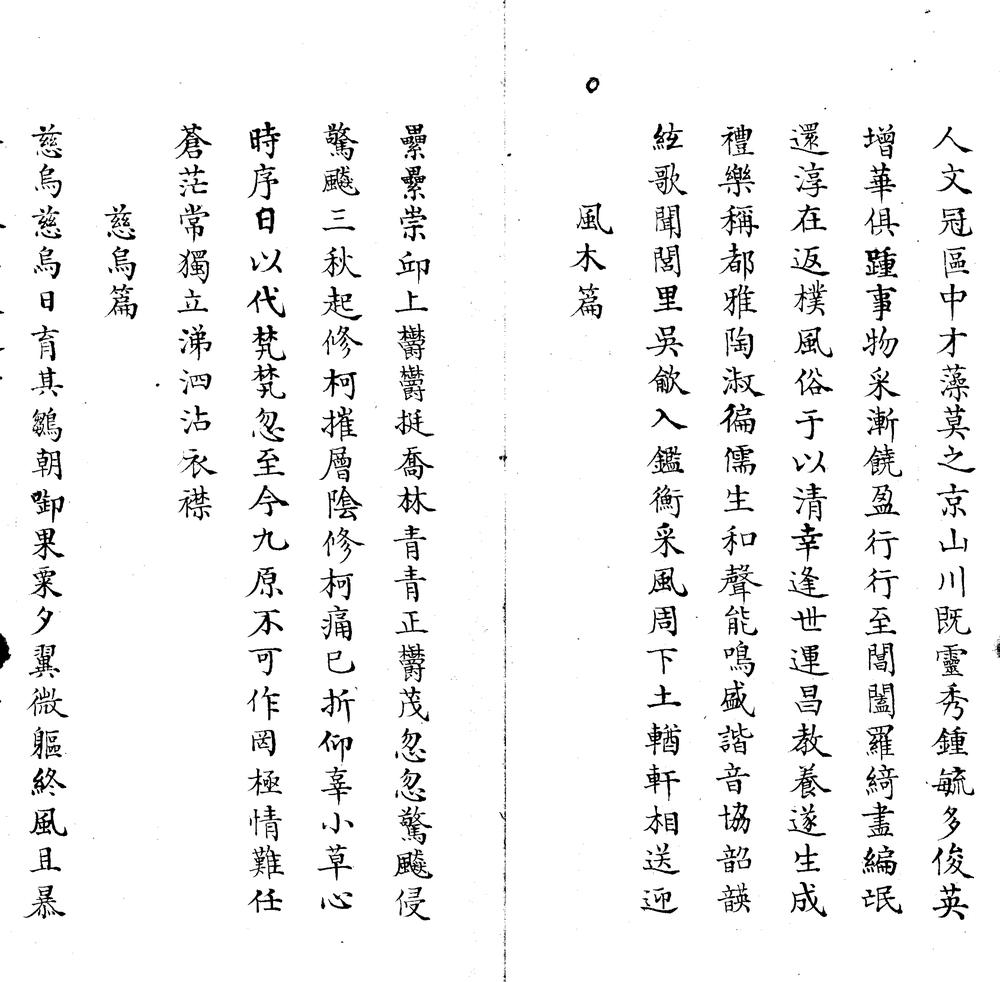 人文冠區中才藻莫之京山川既靈秀鍾毓多俊英
增華俱踵事物采漸饒盈行行至閶闔羅綺盡編氓
還淳在返樸風俗于以清幸逢世運昌教養遂生成
禮樂稱都雅陶淑徧儒生和聲能鳴盛諧音協韶韺
絃歌聞閭里吳歈入鑑衡采風周下土輶軒相送迎
風木篇
纍纍崇邱上欝欝挺喬林青青正欝茂忽忽驚飈侵
驚飈三秋起修柯摧層陰修柯痛已折仰辜小草心
時序日以代煢煢忽至今九原不可作罔極情難任
蒼茫常獨立涕泗沾衣襟
慈烏篇
慈烏慈烏日育其鶵朝啣果粟夕翼微軀終風且暴